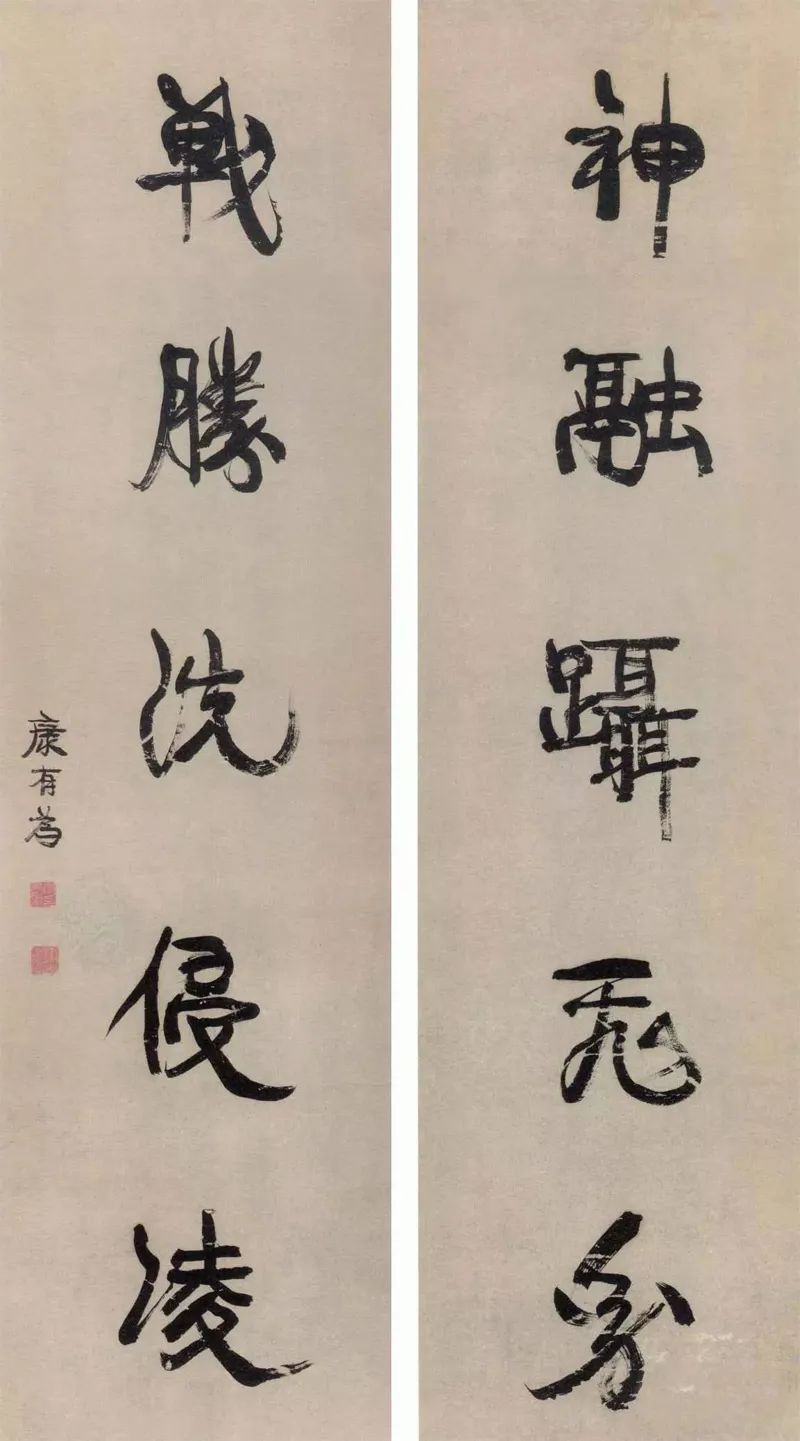 神融躡飛動
戰勝洗侵凌
康有為